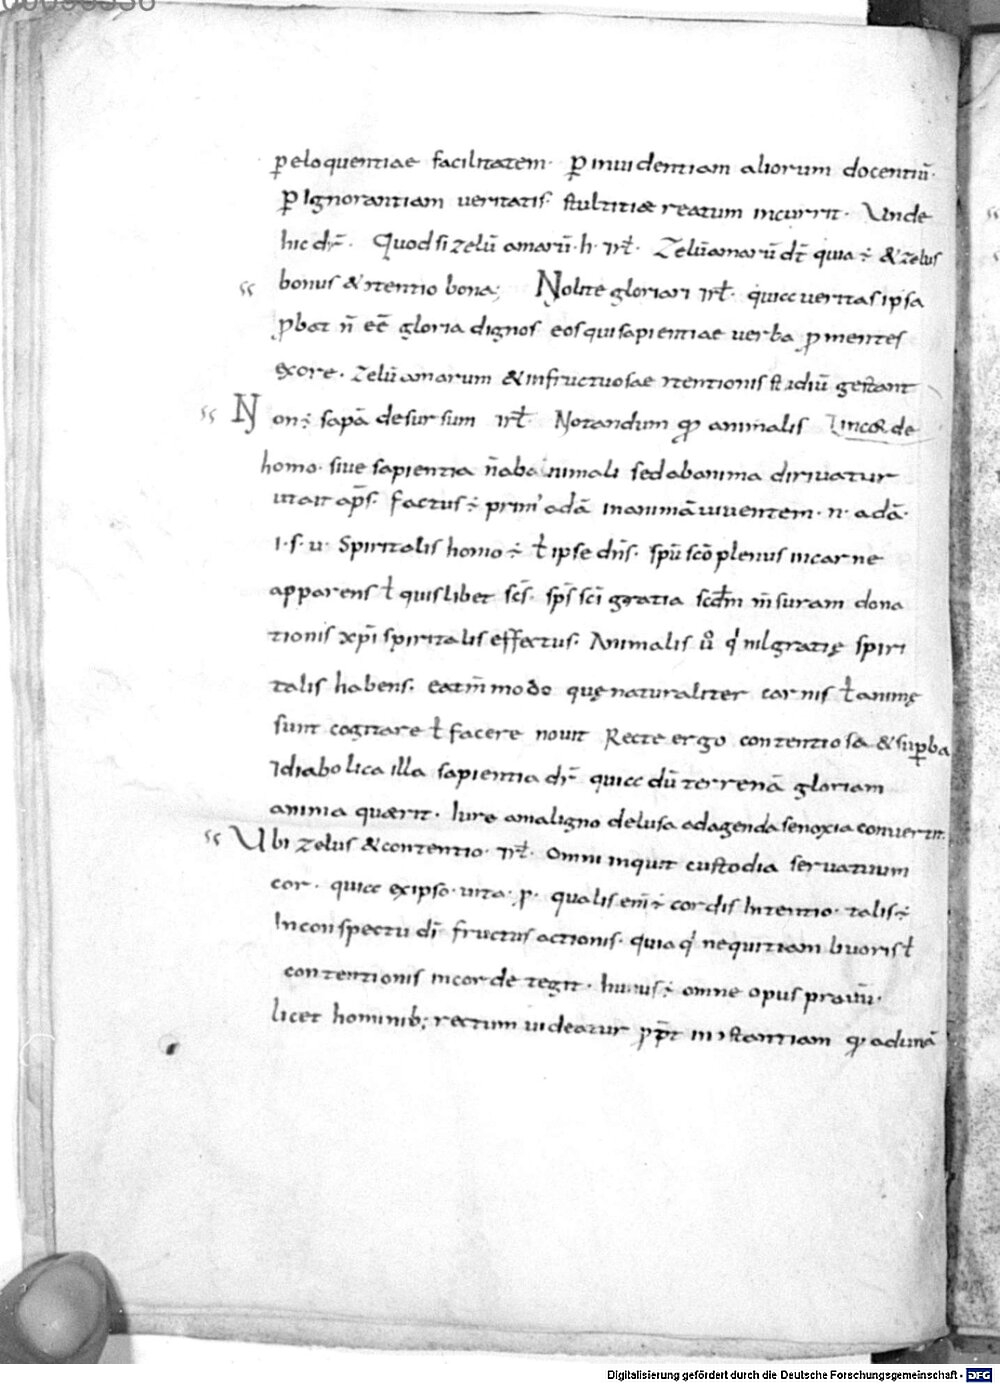 ꝑeloquentiae facilitatem· ꝑ inuidentiam aliorum docentiū·
ꝑ Ignorantiam ueritatis· stultitiae reatum incurrit· Unde
hic dr̄· Quod si zelū amarū· h· rł· Zelū amarū dt̄ quia ÷ & zelus
bonus & ntentio bona; Nolite gloriari rł· quicc ueritas ipsa
ꝓbat n̄ eē gloria dignos eos qui sapientiae uerba ꝓmentes
exore· zelū amarum & infructuosae ntentionis studiū gestant
Non ÷ sapā desursum rł· Notandum ꝙ animalis incorde
homo· siue sapientia n̄ abanimali sed abanima diriuatur
utait aps̄· factus ÷ prim' adā inanimā uiuentem· n· adā·
i·s·u· Spiritalis homo ÷ ł ipse dn̄s· spū scō plenus incarne
apparens ł quislibet scs̄· sps̄ sci gratia scdm̄ m̄suram dona
tionis xp̄i spiritalis effectus· Animalis ů q' nil gratię spiri
talis habens· eatm̄modo quę naturaliter carnis ł animę
sunt cogitare ł facere nouit Recte ergo contentiosa & suꝑba
diabolica illa sapientia dr̄ quicc dū terrenā gloriam
anima quaerit· Iure amaligno delusa adagenda senoxia conuertit·
Ubi zelus & contentio· rł· Omni inquit custodia seruatuum
cor· quicc exipso· uita· ꝓ· qualis em̄ ÷ cordis Intentio· talis ÷
Inconspectu dī fructus actionis· quia q' nequitiam liuoris ł
contentionis incorde tegit· huius ÷ omne opus prauū·
licet hominib; rectum uideatur ꝓpt̄ instantiam ꝙ adunā
Digitalisierung gefördert durch die Deutsche Forschungsgemeinschaft - DFG